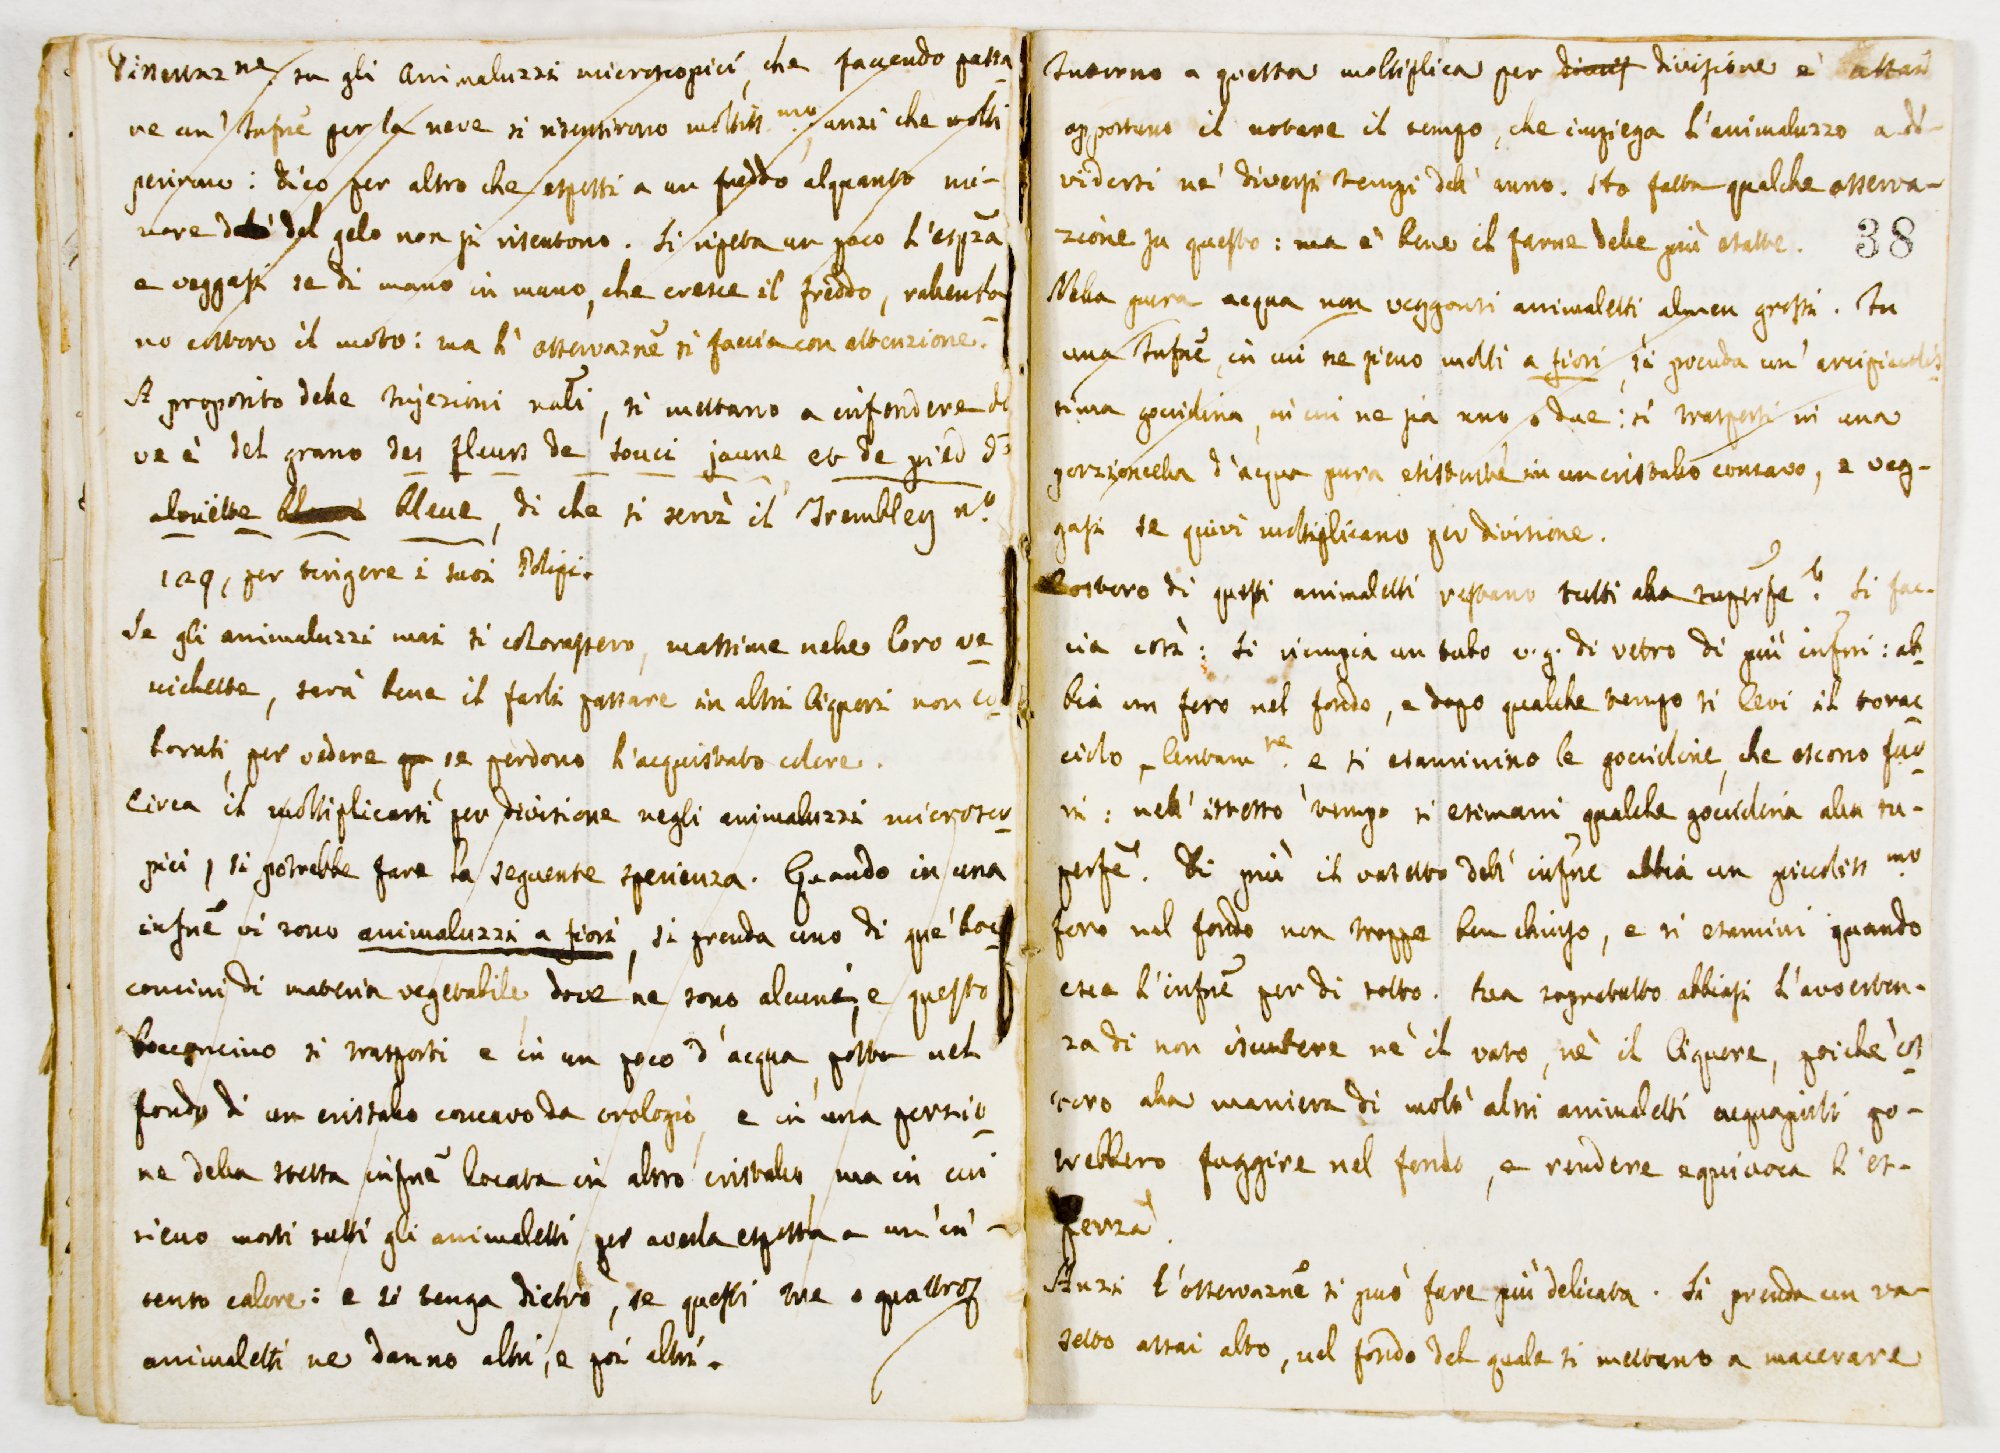 su gli Animaluzzi microscopici, che facendo passa-
re un' Infne per la neve si risentirono moltiss.mo, anzi che molti
perirono: Dico per altro che esposti a un freddo alquanto mi-
nore del gelo non si risentono. Si ripeta un poco l'esprza
e veggasi se di mano in mano, che cresce il freddo, rallenta-
no costoro il moto: ma l'osservazne si faccia con attenzione.
A proposito delle Injezioni nali, si mettano a infondere do-
ve è del grano des fleurs de souci jaune et de pied d'
alouëtte bleue, di che si servì il Trembley n.o
129, per tingere i suoi Polipi.
Se gli animaluzzi mai si colorassero, massime nelle loro ve-
scichette, serà bene il farli passare in altri liquori non co-
lorati, per vedere se perdono l'acquistato colore.
Circa il moltiplicarsi per divisione negli animaluzzi microsco-
pici, si potrebbe fare la seguente sperienza. Quando in una
infne vi sono animaluzzi a fiori, si prenda uno di que' boc-
concini di materia vegetabile, dove ne sono alcuni, e questo
bocconcino si trasporti e in un poco d'acqua posta nel
fondo di un cristallo concavo da orologio, e in una porzio-
ne della stessa infne locata in altro cristallo, ma in cui
sieno morti tutti gli animaletti per averla esposta a un' in-
tenso calore: e si tenga dietro, se questi tre o quattro
animaletti ne danno altri, e poi altri.
Intorno a questa moltiplica per divisione è assai
opportuno il notare il tempo, che impiega l'animaluzzo a di-
vidersi ne' diversi tempi dell' anno. Ho fatta qualche osserva-
zione su questo: ma è bene il farne delle più esatte.
38
Nella pura acqua non veggonsi animaletti almen grossi. In
una Infne, in cui ne sieno molti a fiori, si prenda un' arcipiccolis-
sima gocciolina, in cui ne sia uno o due: si trasporti in una
porzioncella d'acqua pura esistente in un cristallo concavo, e veg-
gasi se quivi moltiplicano per divisione.
Costoro di questi animaletti restano tutti alla superfe? Si fac-
cia così: Si riempia un tubo v.g. di vetro di più infni: ab-
bia un foro nel fondo, e dopo qualche tempo si levi il torac
ciolo lentam.te e si esaminino le goccioline, che escono fuo-
ri: nell' istesso tempo si esimani qualche gocciolina alla su-
perfe. Di più il vasetto dell' infne abbia un piccoliss.mo
foro nel fondo non troppo ben chiuso, e si esamini quando
esca l'infne per di sotto. Ma sopratutto abbiasi l'avverten-
za di non iscuotere nè il vaso, nè il liquore, poichè cos-
toro alla maniera di molti altri animaletti acquajuoli po-
trebbero fuggire nel fondo, e rendere equivoca l'es-
perza.
Anzi l'osservazne si può fare più delicata. Si prenda un va-
setto assai alto, nel fondo del quale si mettano a macerare